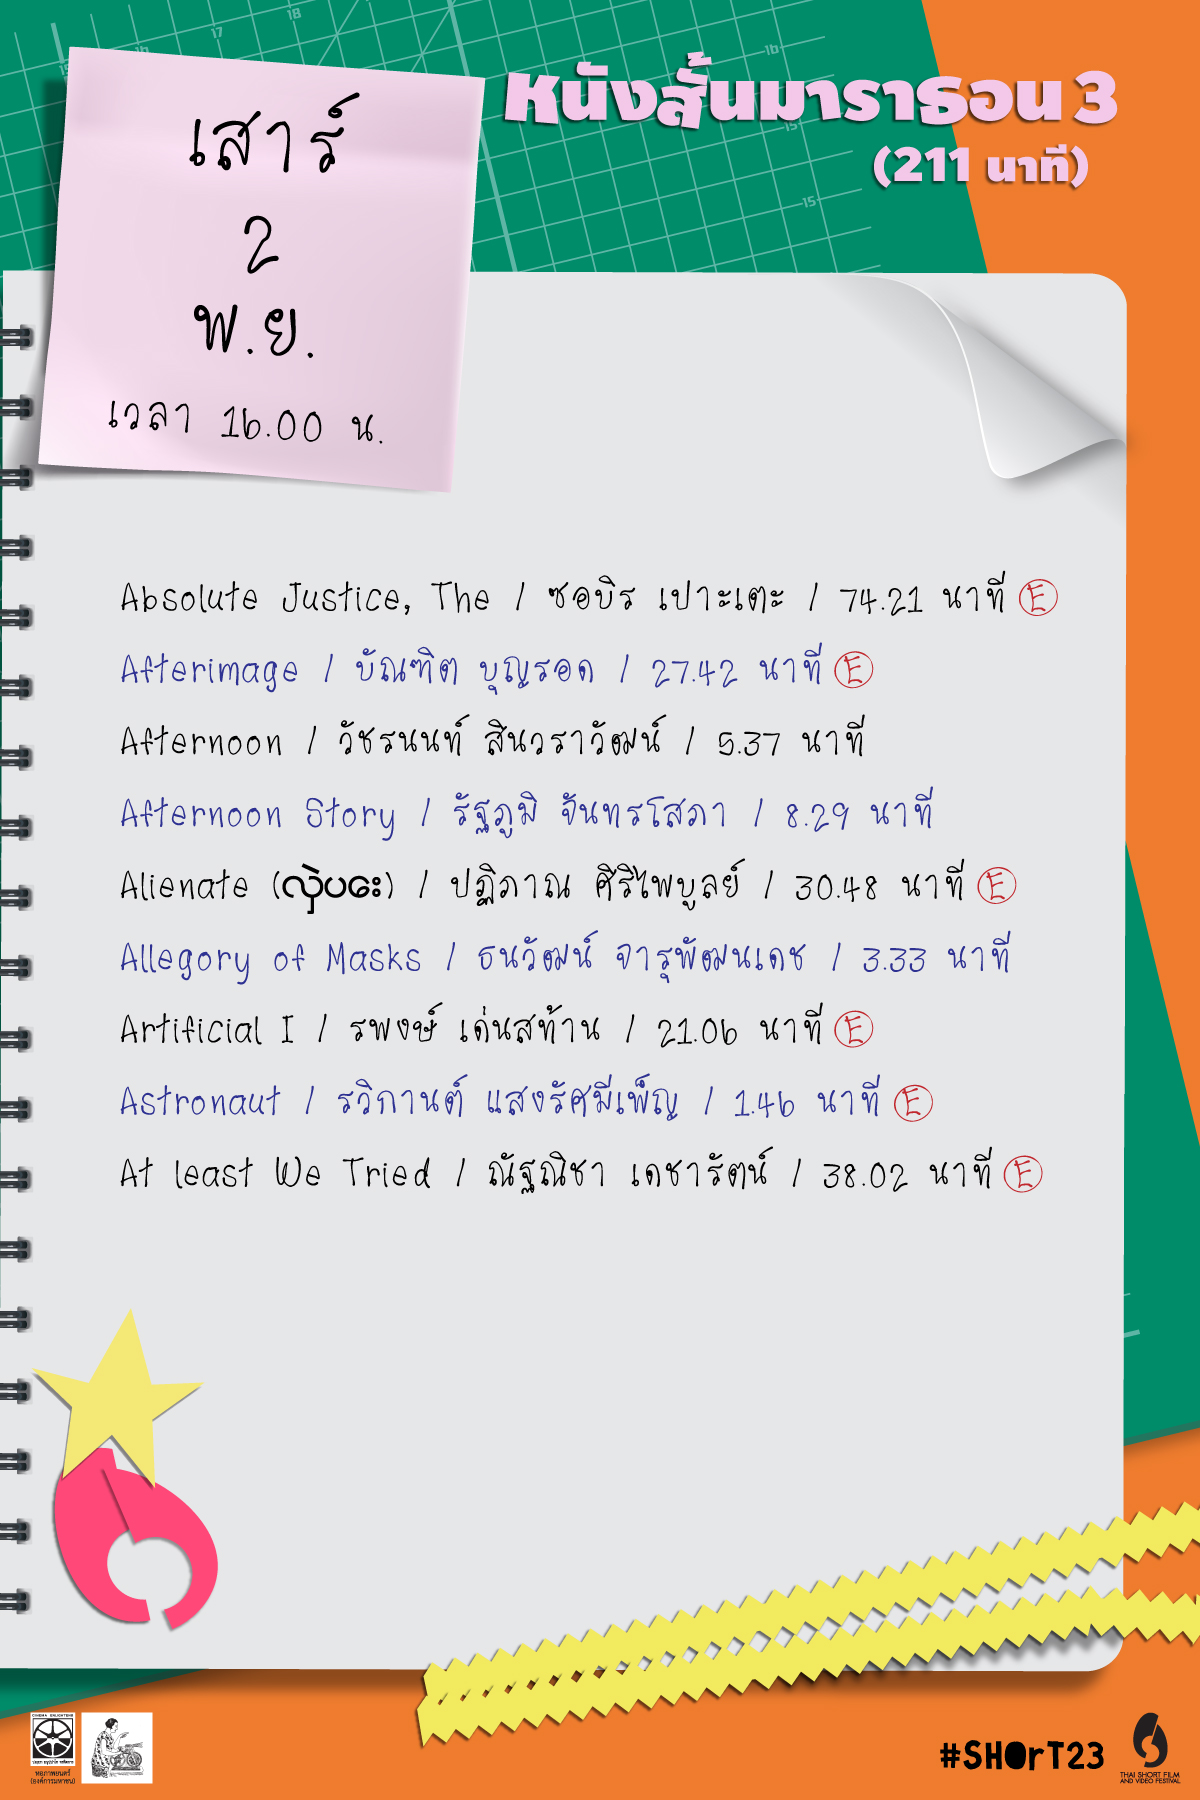 หนังสั้นมาราธอน 3
(211 นาที)
เสาร์
2
พ.ย.
เวลา 16.00 น.
Absolute Justice, The / ซอบิร เปาะเตะ / 74.21 นาที E
Afterimage / บัณฑิต บุญรอด / 27.42 นาที E
Afternoon / วัชรนนท์ สินวราวัฒน์ / 5.37 นาที
Afternoon Story / รัฐภูมิ จันทรโสภา / 8.29 นาที
Alienate (လှဲပခေး) / ปฏิภาณ ศิริไพบูลย์ / 30.48 นาที E
Allegory of Masks / ธนวัฒน์ จารุพัฒนเดช / 3.33 นาที
Artificial I / รพงษ์ เด่นสท้าน / 21.06 นาที E
Astronaut / รวิกานต์ แสงรัศมีเพ็ญ / 1.46 นาที E
At least We Tried / ณัฐณิชา เดชารัตน์ / 38.02 นาที E
หอภาพยนตร์
(องค์การมหาชน)
#SHOrT23
THAI SHORT FILM
AND VIDEO FESTIVAL